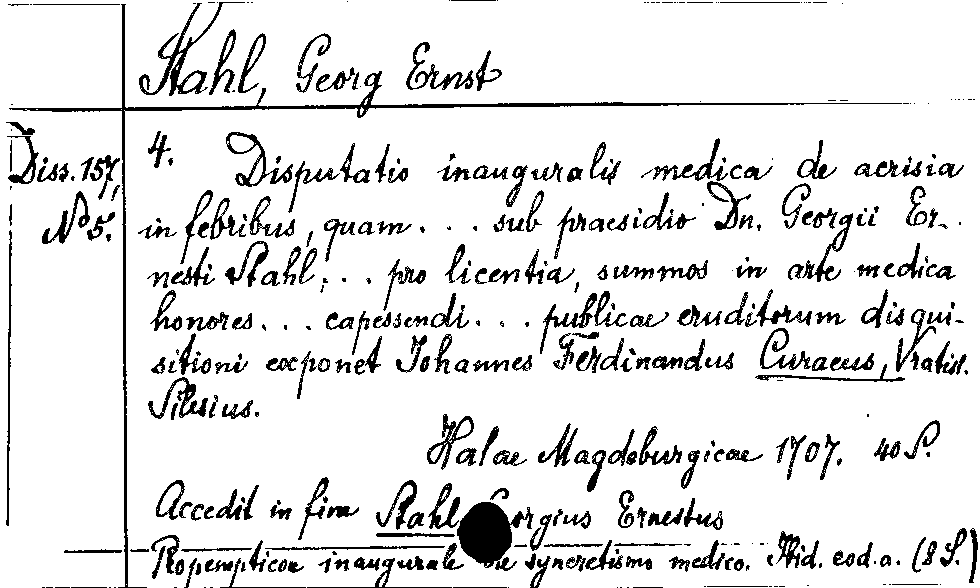 Stahl, Georg Ernst
Diss. 157,
No 5.
4. Disputatio inauguralis medica de acrisia
in febribus, quam . . . sub praesidio Dn. Georgii Er-
nesti Stahl, . . . pro licentia, summos in arte medica
honores . . . capessendi . . . publicae eruditorum disqui-
sitioni exponet Johannes Ferdinandus Curaeus, Vratisl.
Silesius.
Halae Magdeburgicae 1707. 40 S.
Accedit in fine Stahl orgius Ernestus
Propempticon inaugurale de syncretismo medico. Ibid. eod. a. (8 S.)